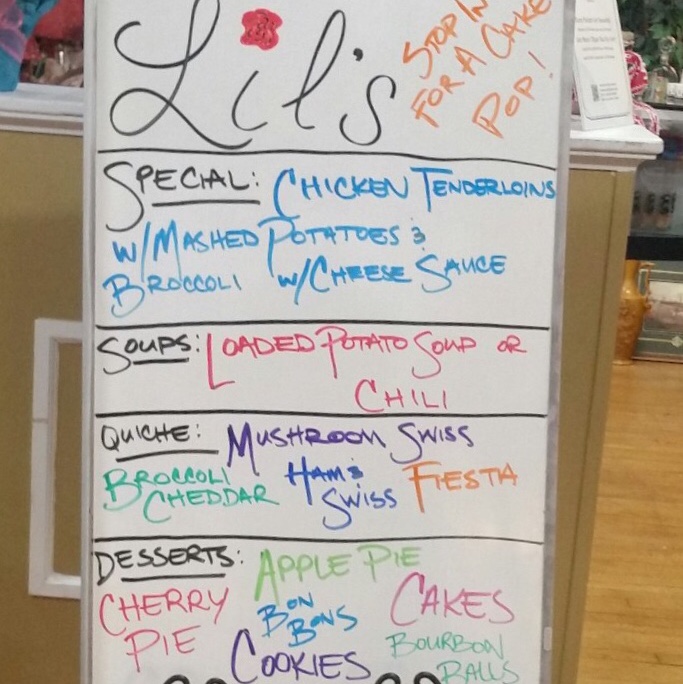 Lil's
STOP IN
FOR A CAKE
POP!
SPECIAL: CHICKEN TENDERLOINS
W/MASHED POTATOES &
BROCCOLI W/CHEESE SAUCE
SOUPS: LOADED POTATO SOUP OR
CHILI
QUICHE: MUSHROOM SWISS
BROCCOLI CHEDDAR
HAM & SWISS
FIESTA
DESSERTS: APPLE PIE
CHERRY PIE
BON BONS
CAKES
COOKIES
BOURBON BALLS